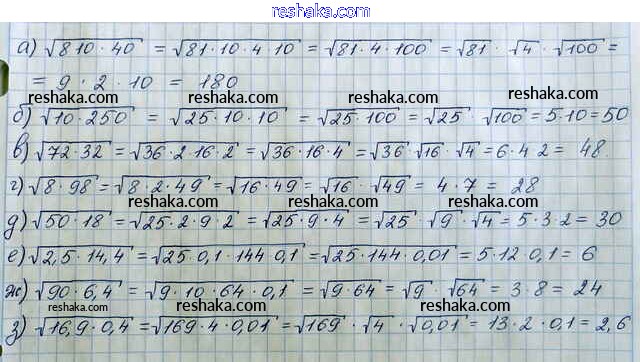 reshaka.com
а) √810·40 = √81·10·4·10 = √81·4·100 = √81 · √4 · √100 =
= 9·2·10 = 180
reshaka.com reshaka.com reshaka.com
б) √10·250 = √25·10·10 = √25·100 = √25 · √100 = 5·10 = 50
в) √72·32 = √36·2·16·2 = √36·16·4 = √36 · √16 · √4 = 6·4·2 = 48.
г) √8·98 = √8·2·49 = √16·49 = √16 · √49 = 4·7 = 28
reshaka.com reshaka.com reshaka.com
д) √50·18 = √25·2·9·2 = √25·9·4 = √25 · √9 · √4 = 5·3·2 = 30
е) √2,5·14,4 = √25·0,1·144·0,1 = √25·144·0,01 = 5·12·0,1 = 6
ж) √90·6,4 = √9·10·64·0,1 = √9·64 = √9 · √64 = 3·8 = 24
reshaka.com reshaka.com reshaka.com
з) √16,9·0,4 = √169·4·0,01 = √169 · √4 · √0,01 = 13·2·0,1 = 2,6
reshaka.com